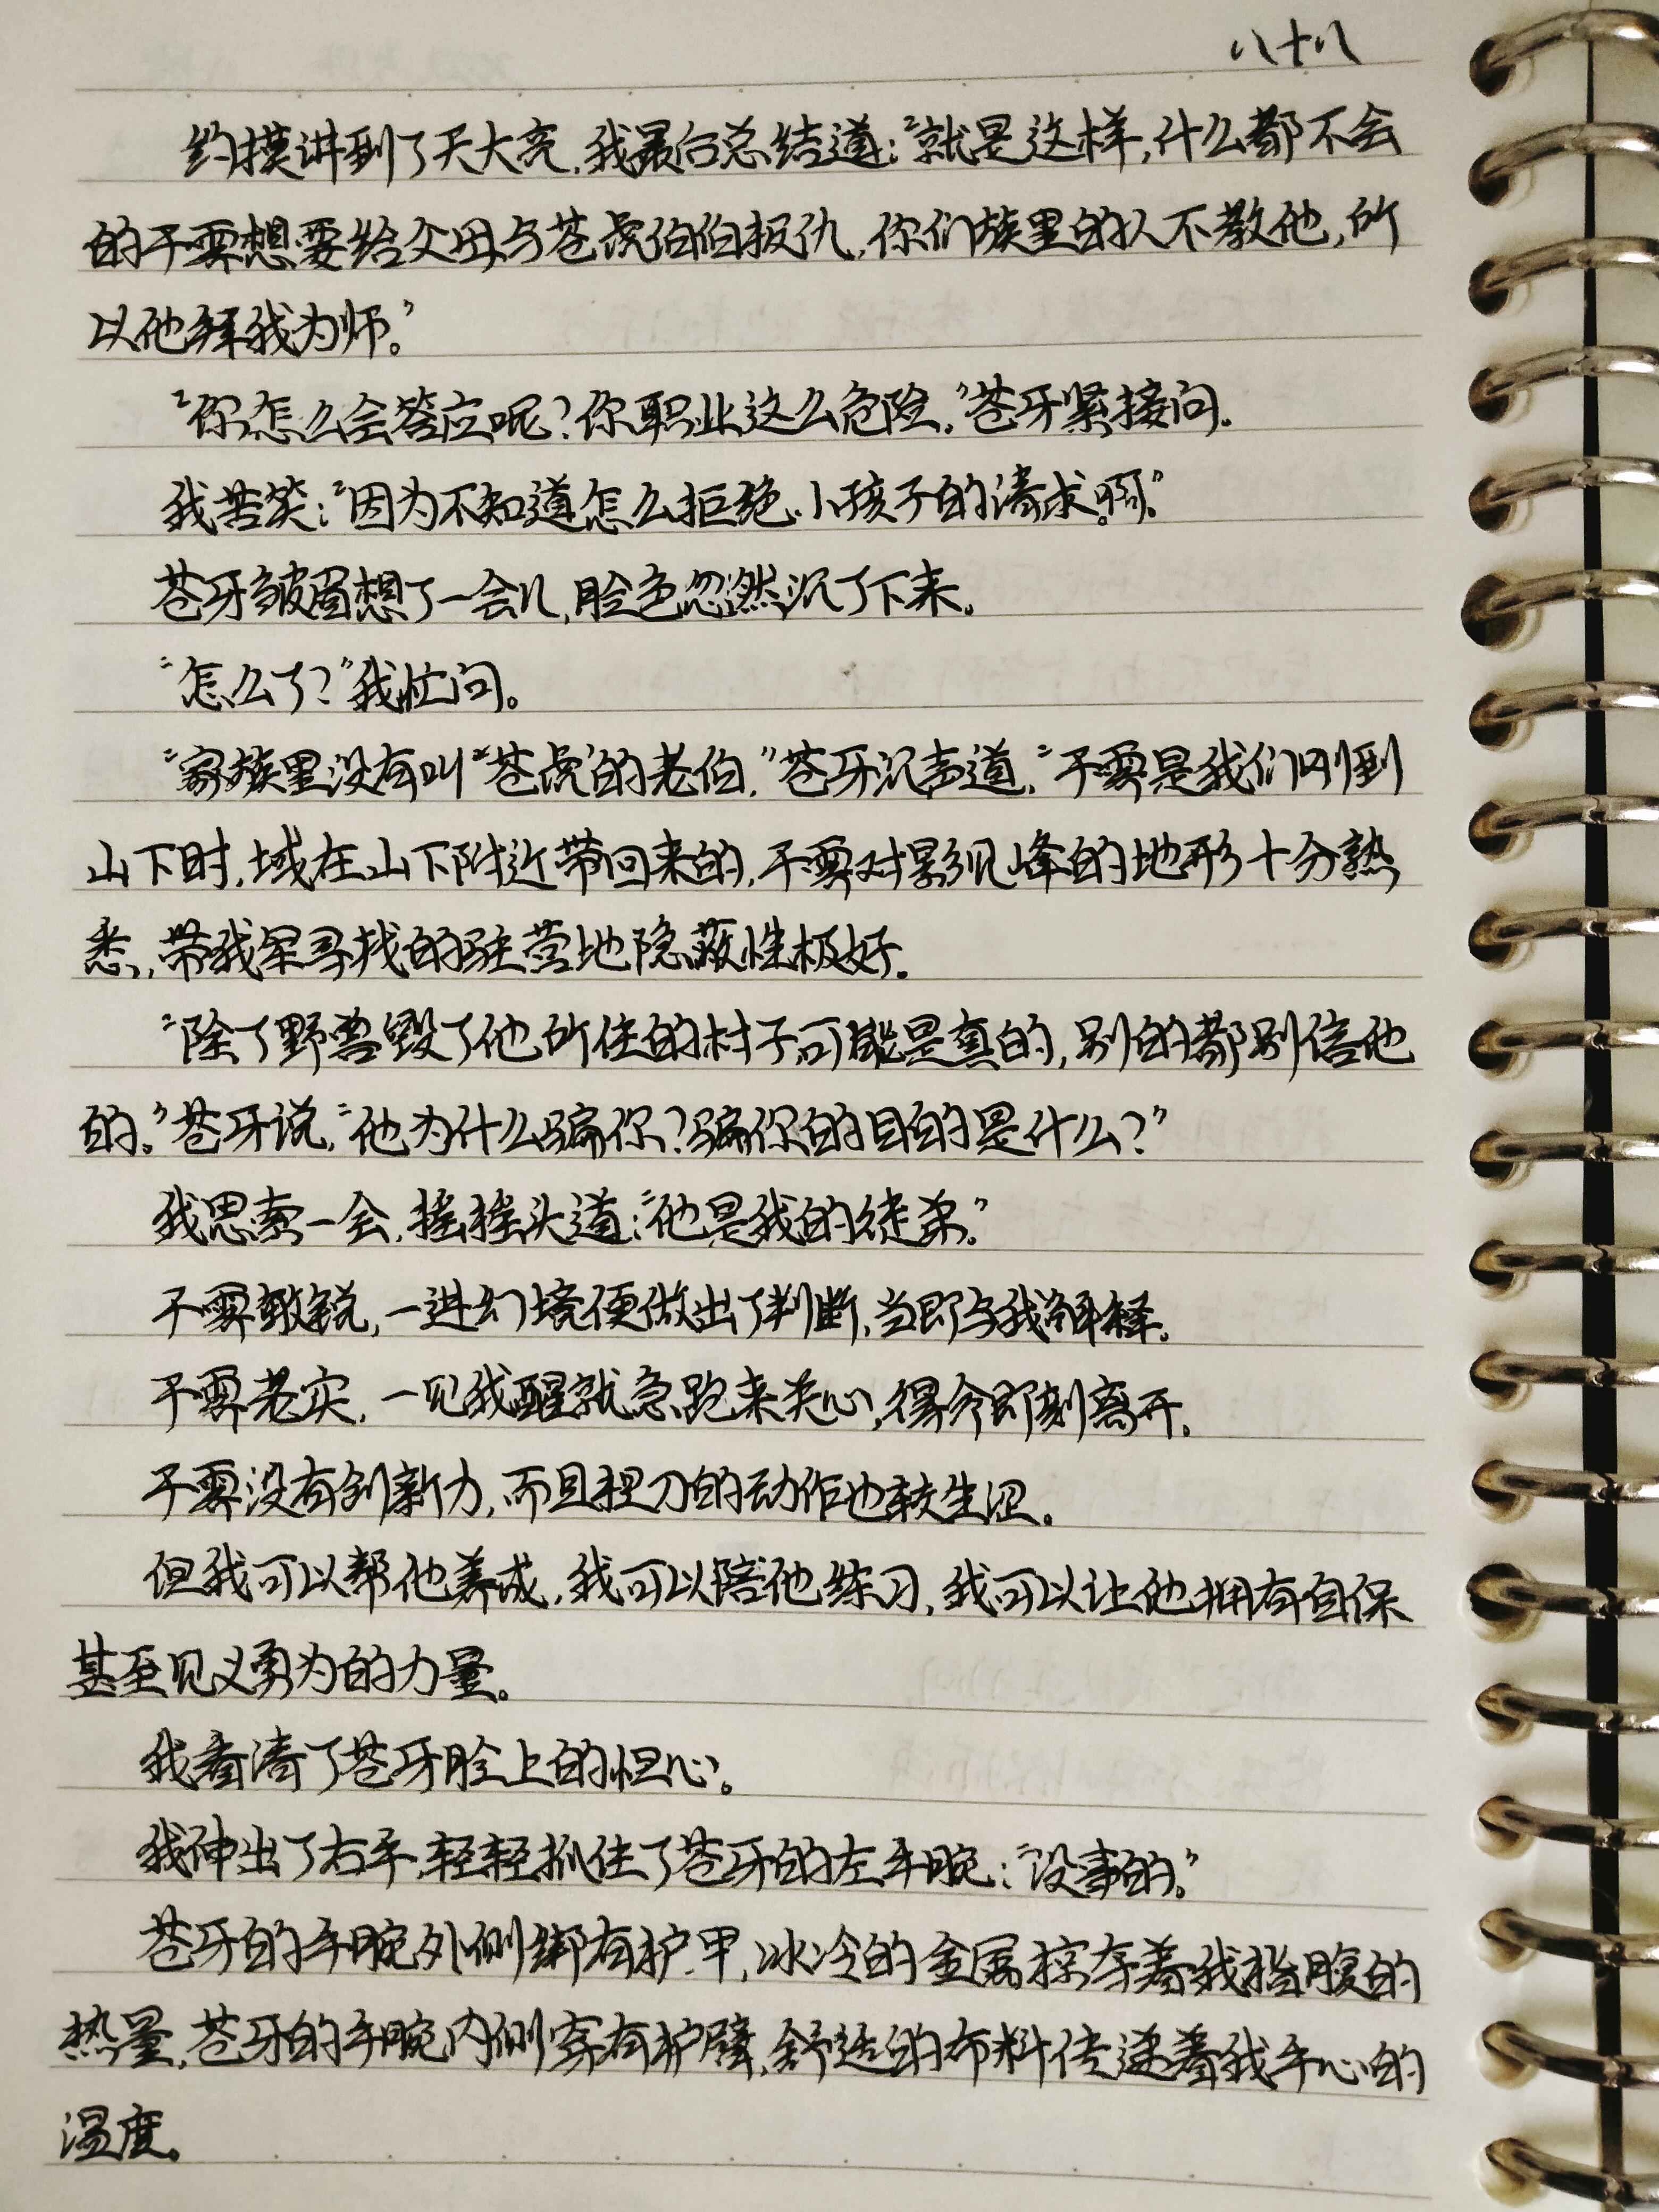 八十八
约摸讲到了天大亮,我最后总结道:“就是这样,什么都不会
的干雲想要给父母与苍虎伯伯报仇,你们族里的人不教他,所
以他拜我为师。”
“你怎么会答应呢?你职业这么危险。”苍牙紧接问。
我苦笑:“因为不知道怎么拒绝小孩子的请求啊。”
苍牙皱眉想了一会儿,脸色忽然沉了下来。
“怎么了?”我忙问。
“家族里没有叫“苍虎”的老伯,”苍牙沉声道,“干雲是我们刚到
山下时,域在山下附近带回来的,干雲对影见峰的地形十分熟
悉,带我军寻找的驻营地隐蔽性极好。
“除了野兽毁了他所住的村子可能是真的,别的都别信他
的。”苍牙说,“他为什么骗你?骗你的目的是什么?”
我思索一会,摇摇头道:“他是我的徒弟。”
干雲敏锐,一进幻境便做出了判断,当即与我解释。
干雲老实,一见我醒就急跑来关心,得令即刻离开。
干雲没有创新力,而且握刀的动作也较生涩。
但我可以帮他养成,我可以陪他练习,我可以让他拥有自保
甚至见义勇为的力量。
我看清了苍牙脸上的担心。
我伸出了右手,轻轻抓住了苍牙的左手腕:“没事的。”
苍牙的手腕外侧绑有护甲,冰冷的金属掠夺着我指腹的
热量,苍牙的手腕内侧穿有护臂,舒适的布料传递着我手心的
温度。